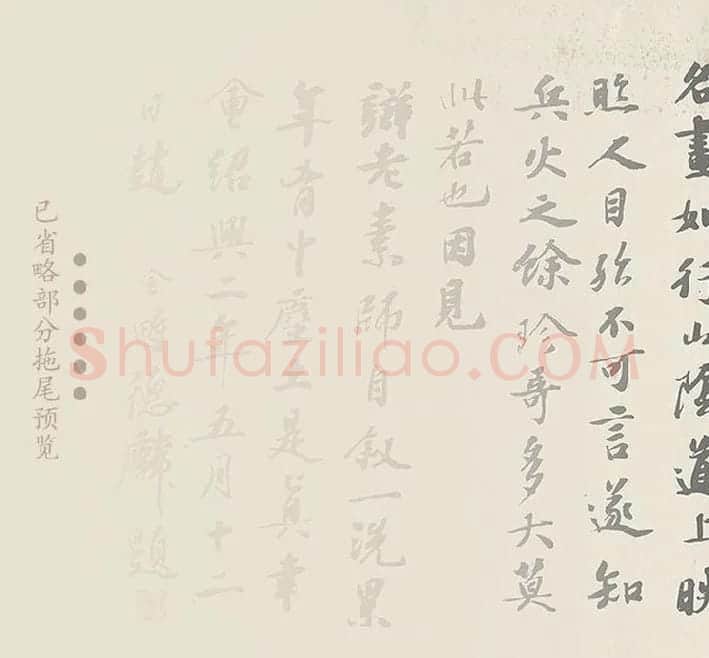 名畫如行山陰道上映
照人目殆不可言遂知
兵火之餘珍奇多矣莫
此若也因見
辯老素師自叙一洗累
年胷中塵土是真幸
會紹興二年五月十二
日趙令畤德麟題
已省略部分拖尾预览
Shufaziliao.COM